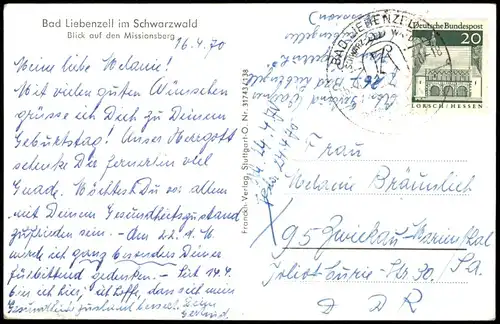 Bad Liebenzell im Schwarzwald
Blick auf den Missionsberg
16.4.70
Meine liebe Melanie!
Mit vielen guten Wünschen
grüsse ich Dich zu Deinem
Geburtstag! Unser Herrgott
schenke Dir fernerhin viel
Gnad. Möchtest Du vor allem
mit Deinem Gesundheitszustand
zufrieden sein. - Am 22. d. M.
würde ich ganz besonders Deiner
fürbittend gedenken. - Seit 14.4.
bin ich hier; ich hoffe, dass sich mein
Gesundheitszustand bessert.
Franckh-Verlag, Stuttgart-O. Nr. 317434138
BAD LIEBENZELL
Deutsche Bundespost
20
LORSCH/HESSEN
Bad Liebenzell
Frau
Melanie Bräunlich
X 95 Zwickau-Marienthal
Joliot-Curie-Str. 30/Sa.
D D R